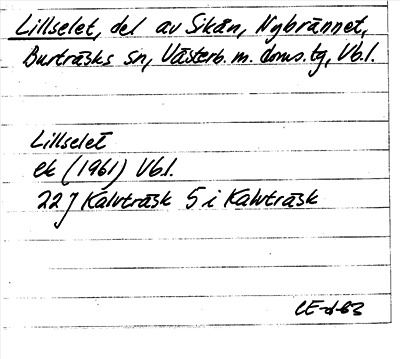 Lillselet, del av Sikån, Nybrännet,
Burträsks sn, Västerb. m. doms.tg, Vb.l.
Lillselet
ek (1961) Vb.l.
22 J Kalvträsk 5 i Kalvträsk
CE-d-63